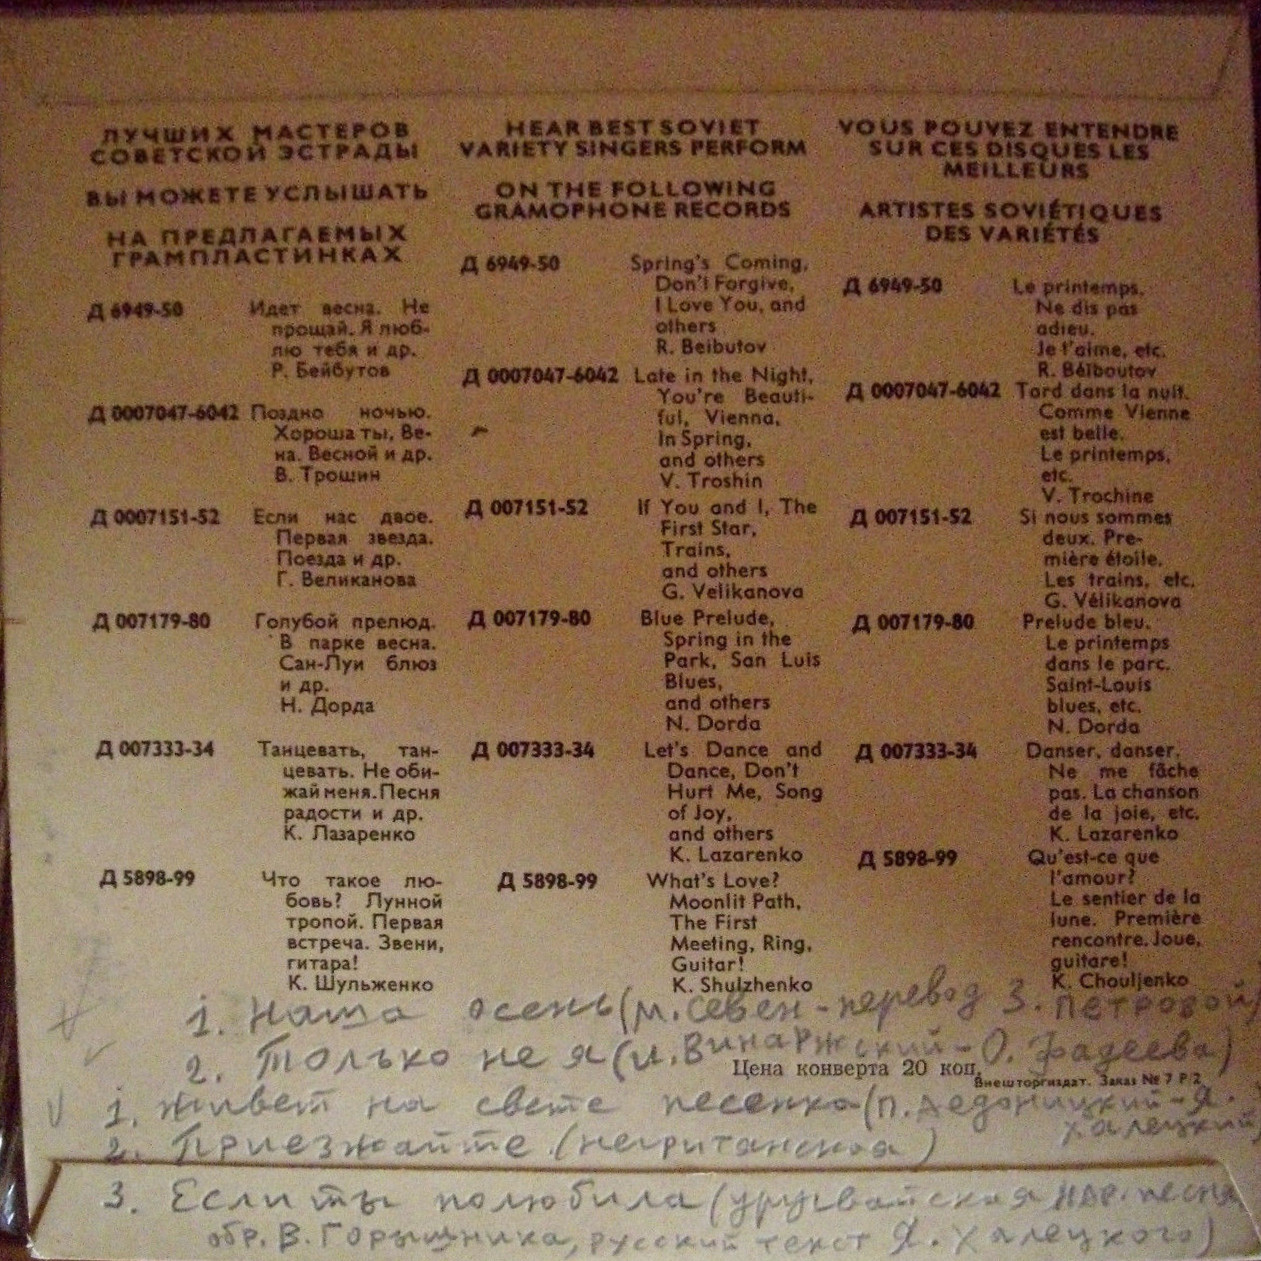 ЛУЧШИХ МАСТЕРОВ
СОВЕТСКОЙ ЭСТРАДЫ
ВЫ МОЖЕТЕ УСЛЫШАТЬ
НА ПРЕДЛАГАЕМЫХ
ГРАМПЛАСТИНКАХ
Д 6949-50 Идет весна. Не
прощай. Я люб-
лю тебя и др.
Р. Бейбутов
Д 0007047-6042 Поздно ночью.
Хороша ты, Ве-
на. Весной и др.
В. Трошин
Д 0007151-52 Если нас двое.
Первая звезда.
Поезда и др.
Г. Великанова
Д 007179-80 Голубой прелюд.
В парке весна.
Сан-Луи блюз
и др.
Н. Дорда
Д 007333-34 Танцевать, тан-
цевать. Не оби-
жай меня. Песня
радости и др.
К. Лазаренко
Д 5898-99 Что такое лю-
бовь? Лунной
тропой. Первая
встреча. Звени,
гитара!
К. Шульженко
HEAR BEST SOVIET
VARIETY SINGERS PERFORM
ON THE FOLLOWING
GRAMOPHONE RECORDS
Д 6949-50 Spring's Coming,
Don't Forgive,
I Love You, and
others
R. Beibutov
Д 0007047-6042 Late in the Night,
You're Beauti-
ful, Vienna,
In Spring,
and others
V. Troshin
Д 007151-52 If You and I, The
First Star,
Trains,
and others
G. Velikanova
Д 007179-80 Blue Prelude,
Spring in the
Park, San Luis
Blues,
and others
N. Dorda
Д 007333-34 Let's Dance and
Dance, Don't
Hurt Me, Song
of Joy,
and others
K. Lazarenko
Д 5898-99 What's Love?
Moonlit Path,
The First
Meeting, Ring,
Guitar!
K. Shulzhenko
VOUS POUVEZ ENTENDRE
SUR CES DISQUES LES
MEILLEURS
ARTISTES SOVIÉTIQUES
DES VARIÉTÉS
Д 6949-50 Le printemps.
Ne dis pas
adieu.
Je t'aime, etc.
R. Béiboutov
Д 0007047-6042 Tard dans la nuit.
Comme Vienne
est belle.
Le printemps,
etc.
V. Trochine
Д 007151-52 Si nous sommes
deux. Pre-
mière étoile.
Les trains, etc.
G. Vélikanova
Д 007179-80 Prelude bleu.
Le printemps
dans le parc.
Saint-Louis
blues, etc.
N. Dorda
Д 007333-34 Danser, danser.
Ne me fâche
pas. La chanson
de la joie, etc.
K. Lazarenko
Д 5898-99 Qu'est-ce que
l'amour?
Le sentier de la
lune. Première
rencontre. Joue,
guitare!
K. Chouljenko
1. Наша осень (М. Севен - перевод З. Петровой)
2. Только не я (И. Винаржский - О. Фадеева)
Цена конверта 20 коп.
Внешторгиздат. Заказ № 7 Р/2
1. Живет на свете песенка (П. Ледоницкий - Я.
Халецкий)
2. Приезжайте (негритянская)
3. Если ты полюбила (уругвайская нар. песня
обр. В. Горышника, русский текст Я. Халецкого)